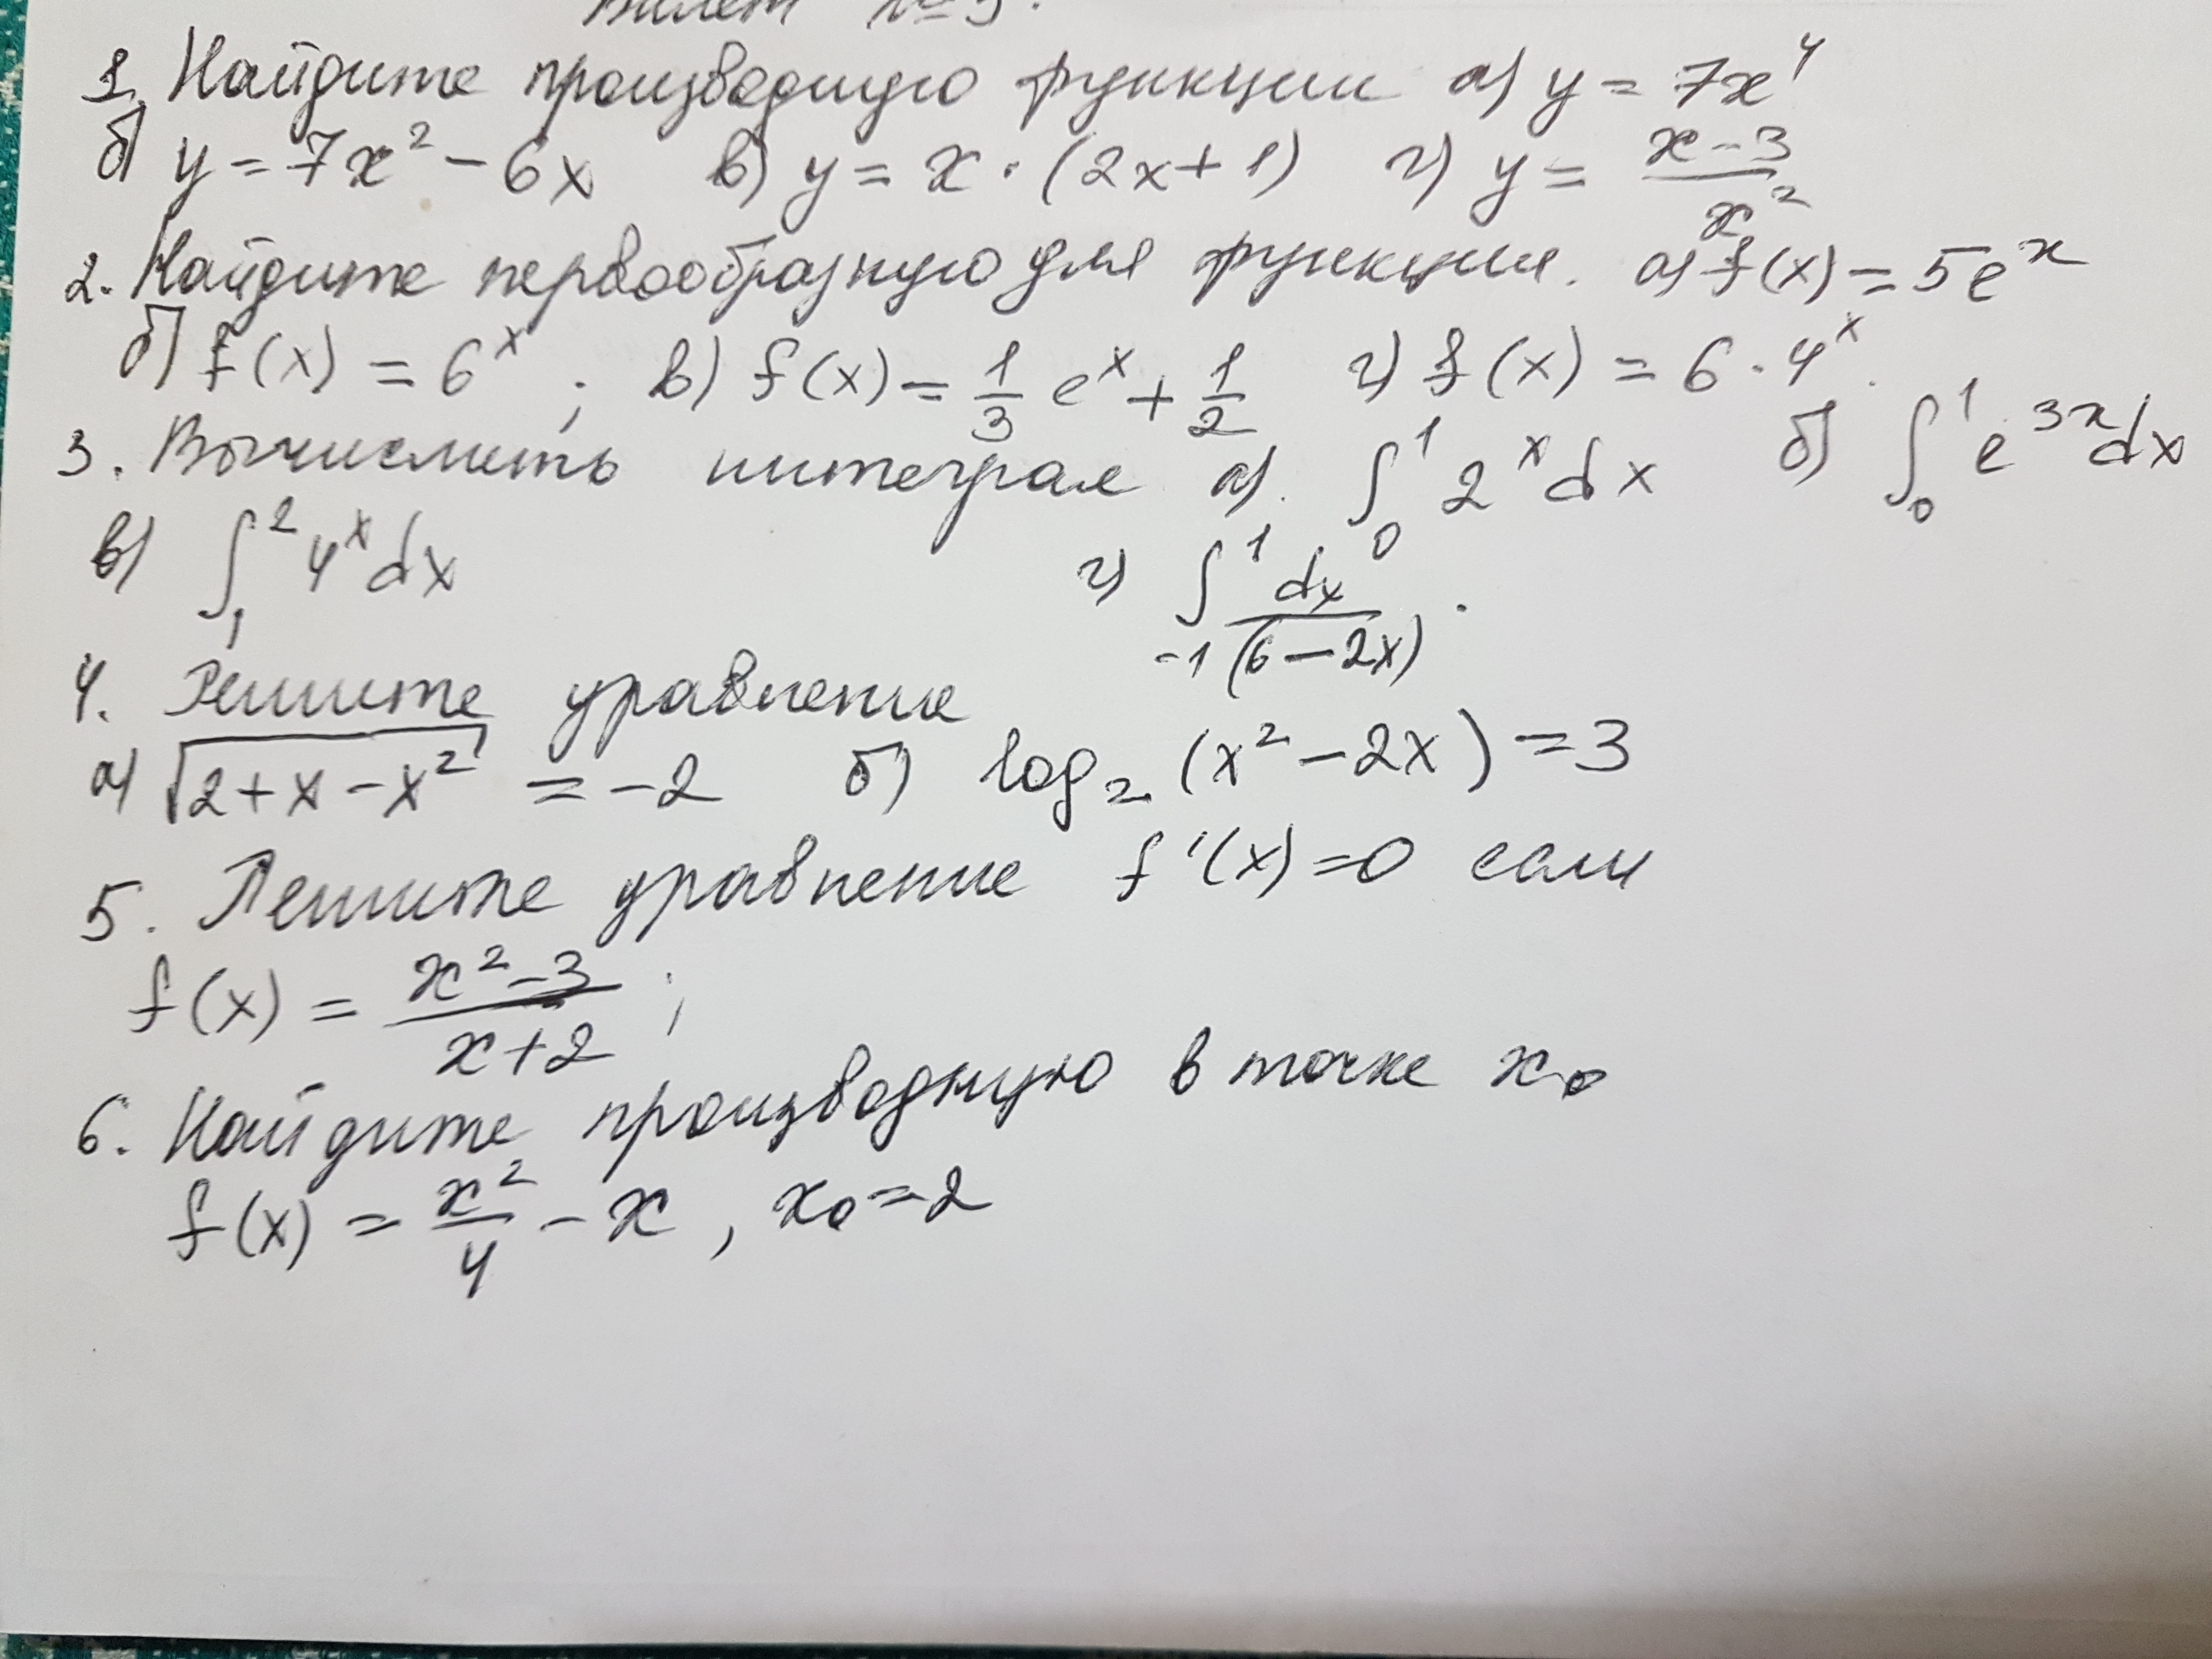 Билет №5.
1. Найдите производную функции а) y = 7x⁴
б) y = 7x² - 6x в) y = x · (2x + 1) г) y = (x - 3)/x²
2. Найдите первообразную для функции. а) f(x) = 5e^x
б) f(x) = 6^x ; в) f(x) = 1/3 e^x + 1/2 г) f(x) = 6 · 4^x.
3. Вычислить интеграл а). ∫₀¹ 2^x dx б) ∫₀¹ e^(3x) dx
в) ∫₁² 4^x dx г) ∫₋₁¹ dx/(6 - 2x) .
4. Решите уравнение
а) √(2 + x - x²) = -2 б) log₂ (x² - 2x) = 3
5. Решите уравнение f'(x) = 0 если
f(x) = (x² - 3)/(x + 2) ;
6. Найдите производную в точке x₀
f(x) = x²/4 - x , x₀ = 2